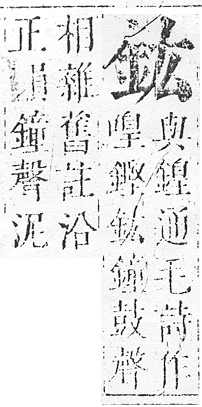 鈜
與鍠通毛詩作
喤鏗鈜鐘鼓聲
相雜舊註沿
正韻鐘聲泥